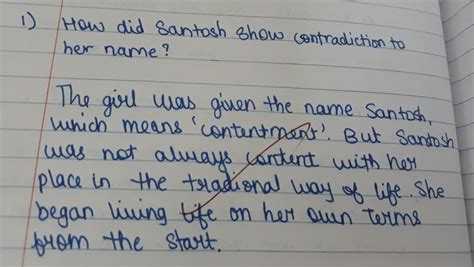 1) How did Santosh show contradiction to
her name?
The girl was given the name Santosh,
which means 'contentment'. But Santosh
was not always content with her
place in the tradional way of life. She
began living life on her own terms
from the start.